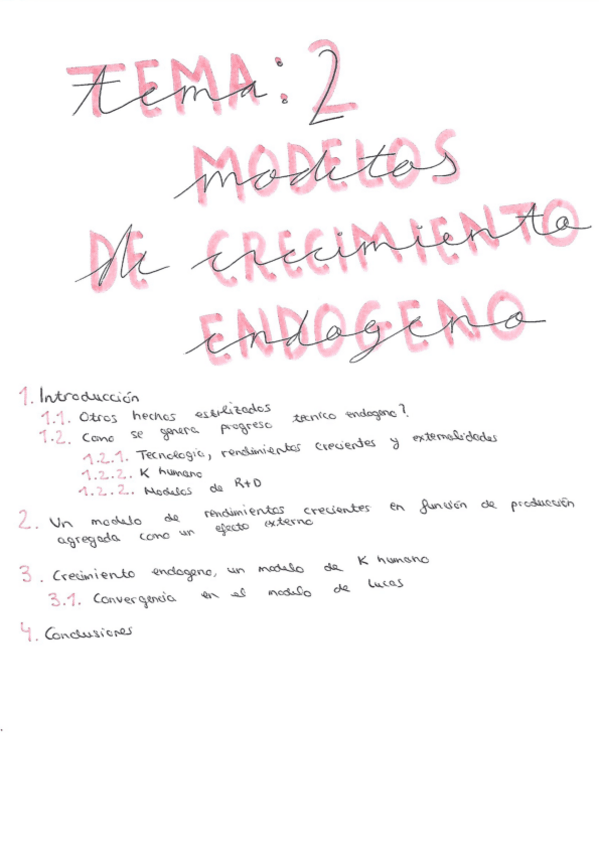 tema: 2
TEMA: 2
modelos
MODELOS
de crecimiento
DE CRECIMIENTO
endogeno
ENDOGENO
1. Introducción
1.1. Otros hechos estilizados
1.2. Como se genera progreso tecnico endogeno?
1.2.1. Tecnología, rendimientos crecientes y externalidades
1.2.2. K humano
1.2.2. Modelos de R+D
2. Un modelo de rendimientos crecientes en función de producción
agregada como un efecto externo
3. Crecimiento endogeno, un modelo de K humano
3.1. Convergencia en el modelo de Lucas
4. Conclusiones